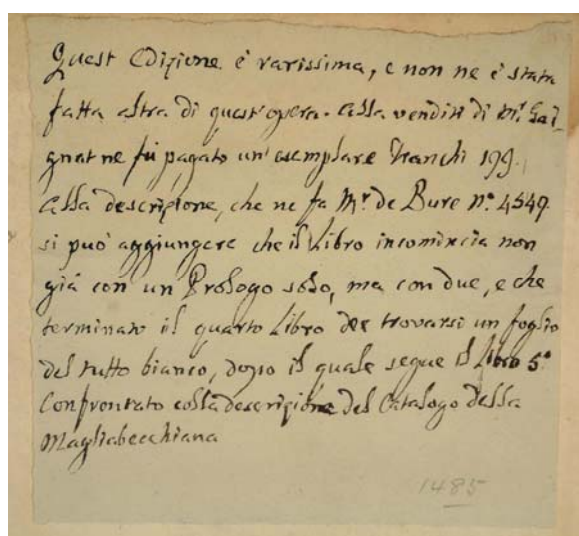 Quest Edizione è rarissima, e non ne è stata
fatta altra di quest'opera. Alla vendita di Mr. Gai_
gnat ne fù pagato un'esemplare Franchi 199.
Alla descrizione, che ne fa Mr. de Bure No. 4549.
si può aggiungere che il Libro incomincia non
già con un Prologo solo, ma con due, e che
terminato il quarto Libro dee trovarsi un foglio
del tutto bianco, dopo il quale segue il Libro 5o
Confrontato colla descrizione del Catalogo della
Magliabecchiana
1485